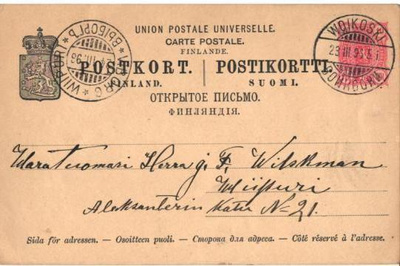 UNION POSTALE UNIVERSELLE.
CARTE POSTALE.
FINLANDE.
POSTKORT. POSTIKORTTI.
FINLAND. SUOMI.
ОТКРЫТОЕ ПИСЬМО.
ФИНЛЯНДІЯ.
WOIKOSKI
WIIPURI
ВЫБОРГЪ
Waratuomari Herra J. F. Wilskman
Wiipuri
Aleksanterin Katu N=21.
Sida för adressen. — Osoitteen puoli. — Сторона для адреса. — Côté réservé à l'adresse.